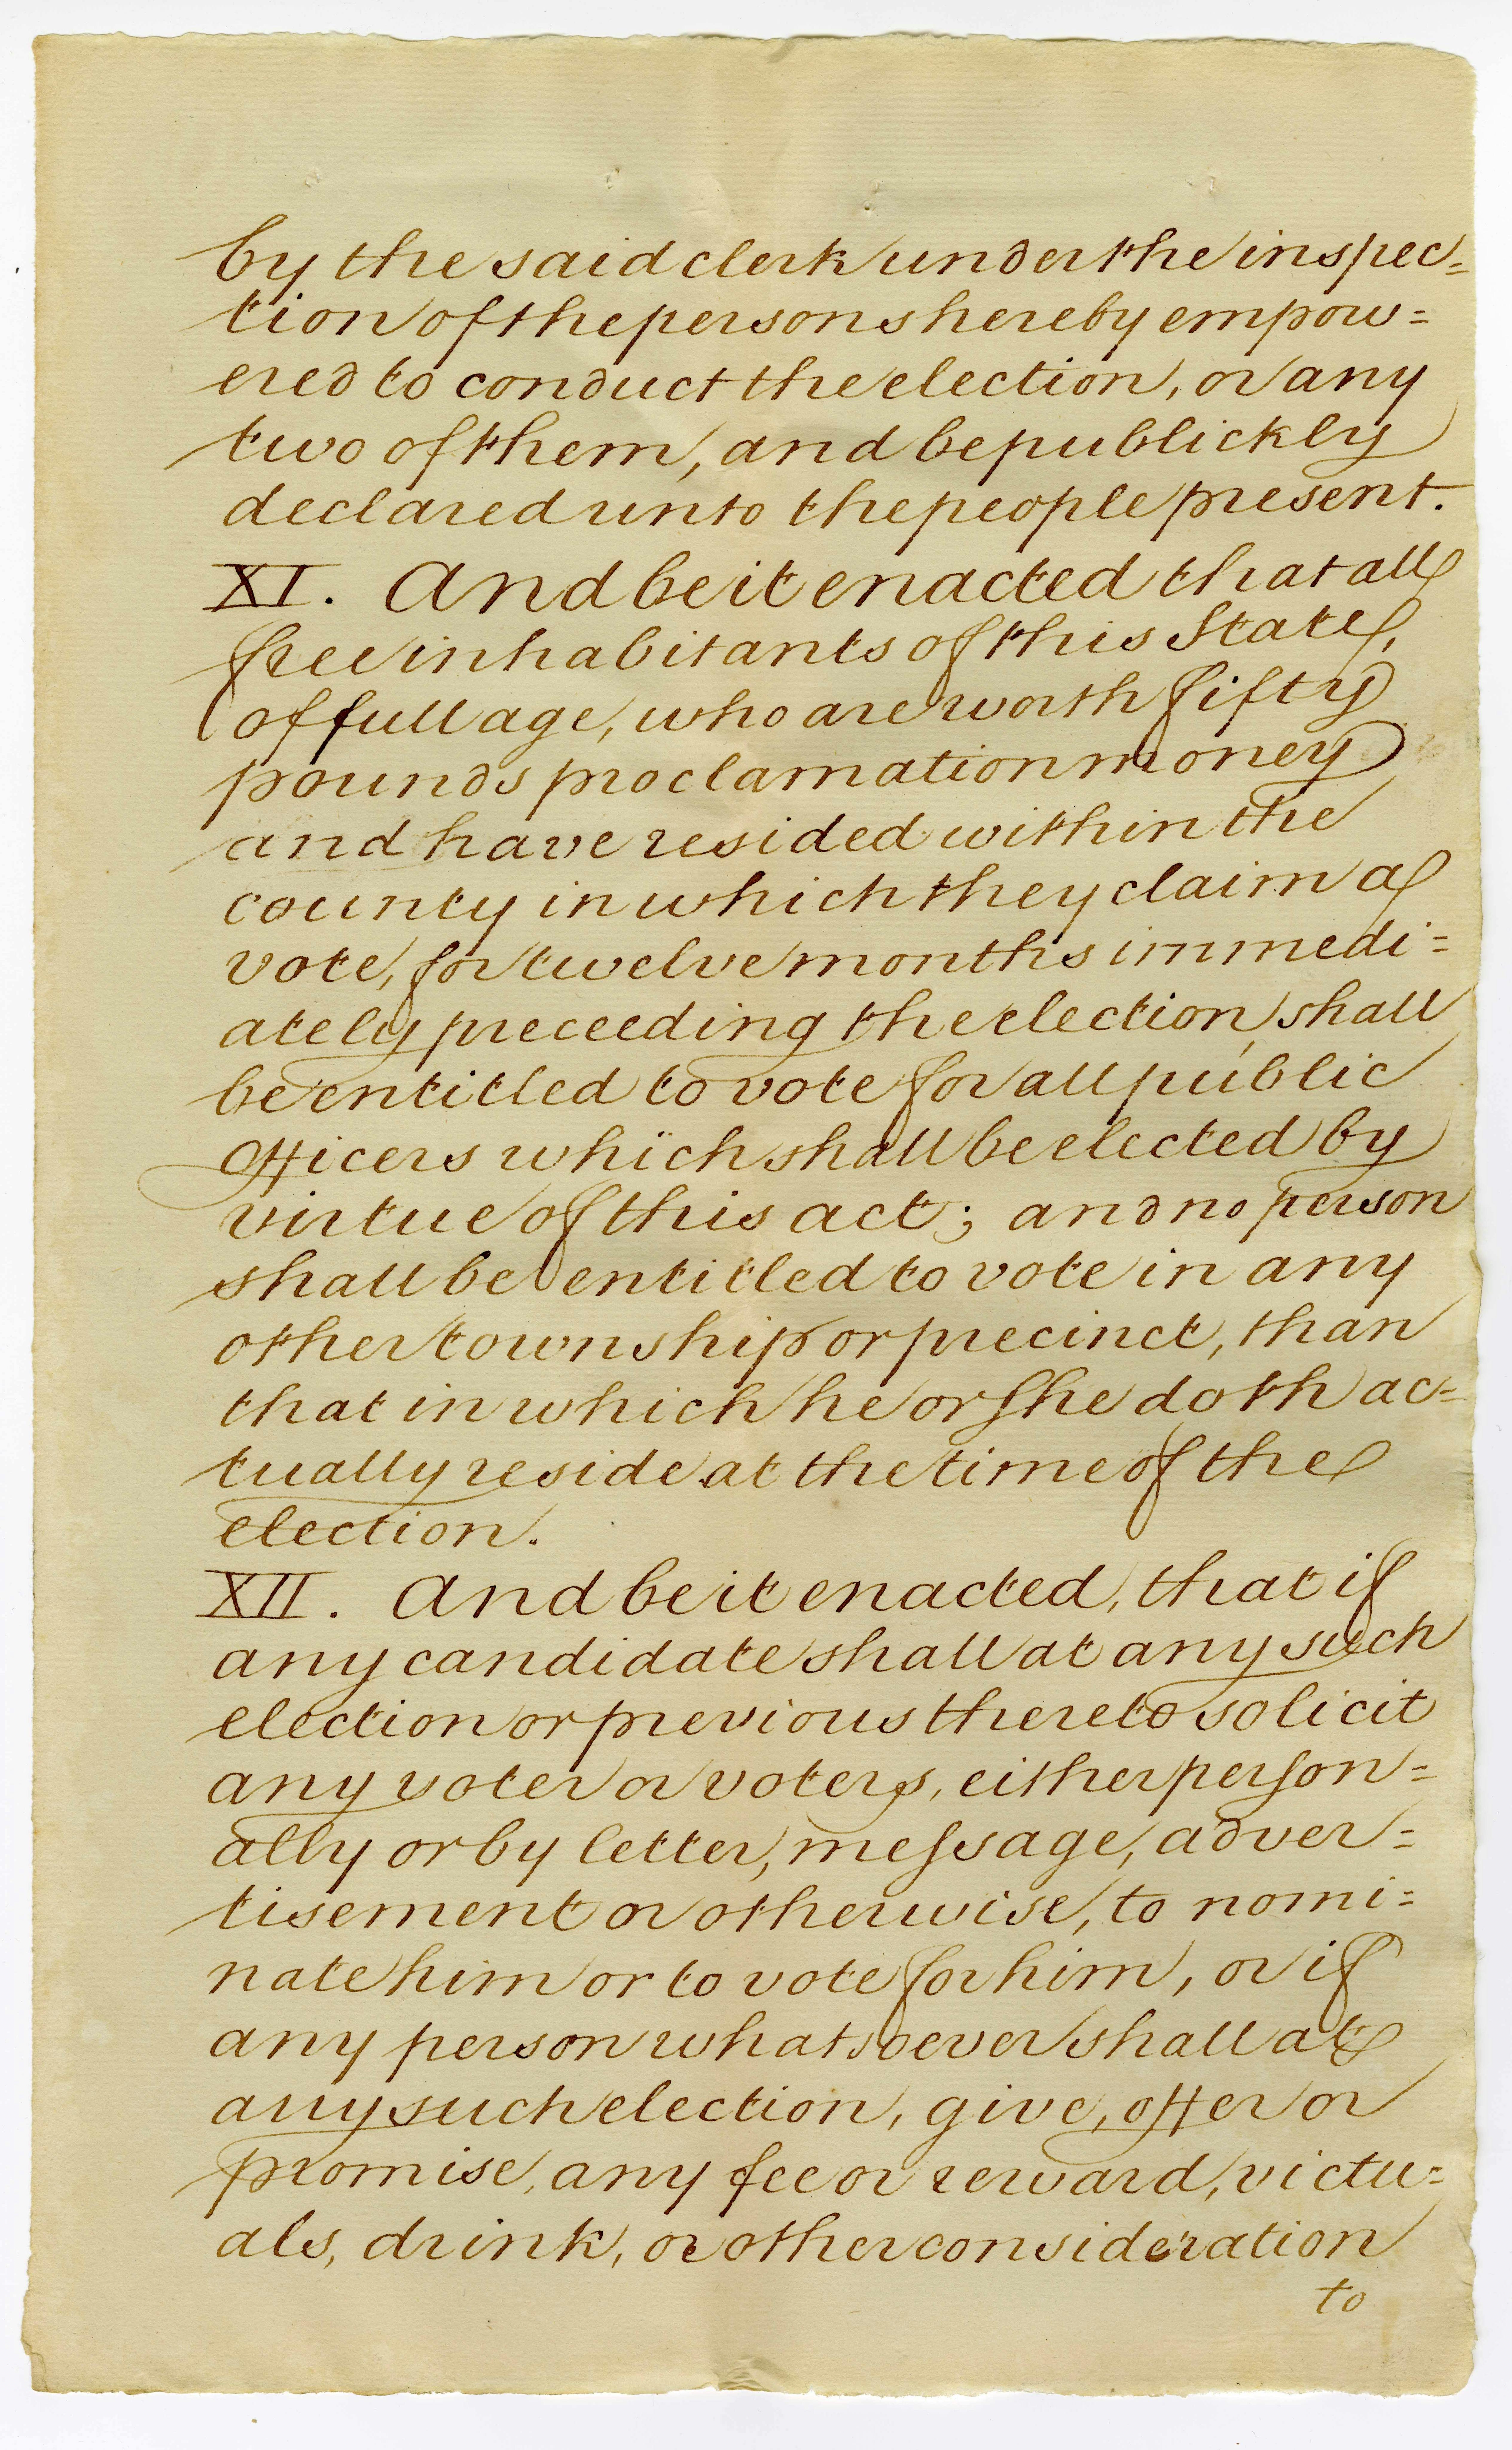 by the said clerk under the inspec=
tion of the persons hereby empow=
ered to conduct the election, or any
two of them, and be publickly
declared unto the people present.
XI. And be it enacted that all
free inhabitants of this State,
of full age, who are worth fifty
pounds proclamation money
and have resided within the
county in which they claim a
vote, for twelve months immedi=
ately preceeding the election, shall
be entitled to vote for all public
Officers which shall be elected by
virtue of this act; and no person
shall be entitled to vote in any
other township or precinct, than
that in which he or she doth ac=
tually reside at the time of the
election.
XII. And be it enacted, that if
any candidate shall at any such
election or previous thereto solicit
any voter or voters, either person=
ally or by letter, message, adver=
tisement or otherwise, to nomi=
nate him or to vote for him, or if
any person whatsoever shall at
any such election, give, offer or
promise, any fee or reward, victu=
als, drink, or other consideration
to